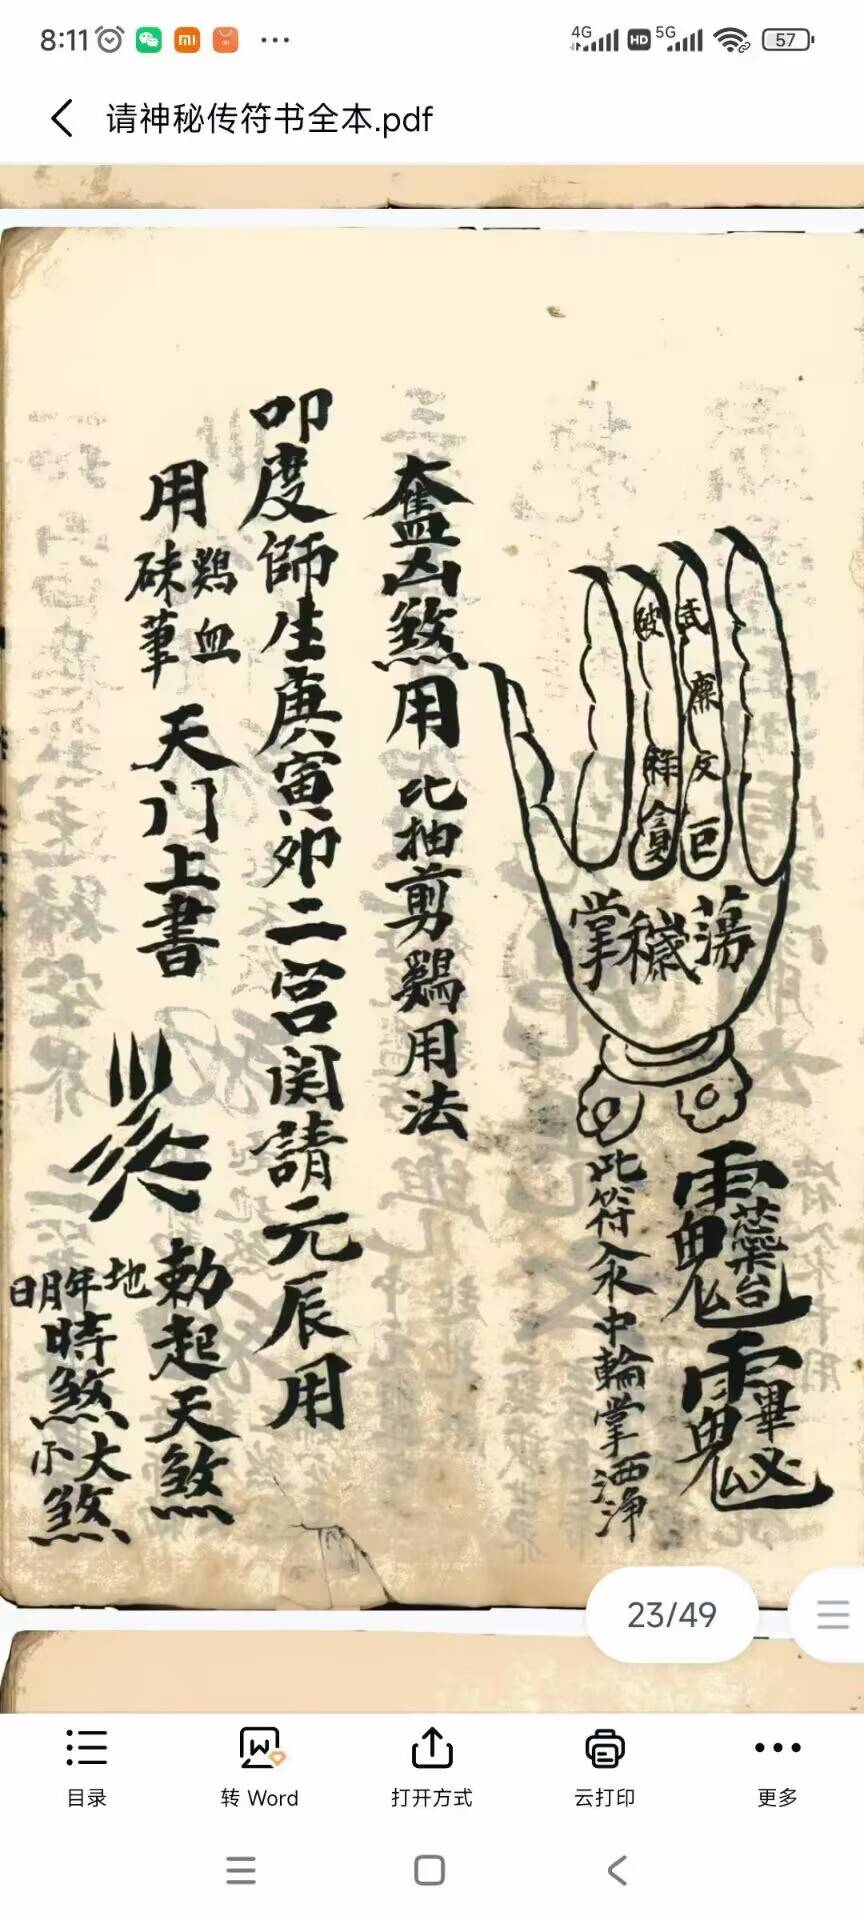 8:11
4G HD 5G 57
请神秘传符书全本.pdf
武
破
廉
文
祿
貪
巨
蕩穢掌
此符入水中輪掌洒淨
凶煞用比抽剪鷄用法
叩度師生庚寅卯二宫関請元辰用
用硃筆鷄血天门上書
勅起天煞
地年月日時煞大小煞
23/49
目录
转 Word
打开方式
云打印
更多